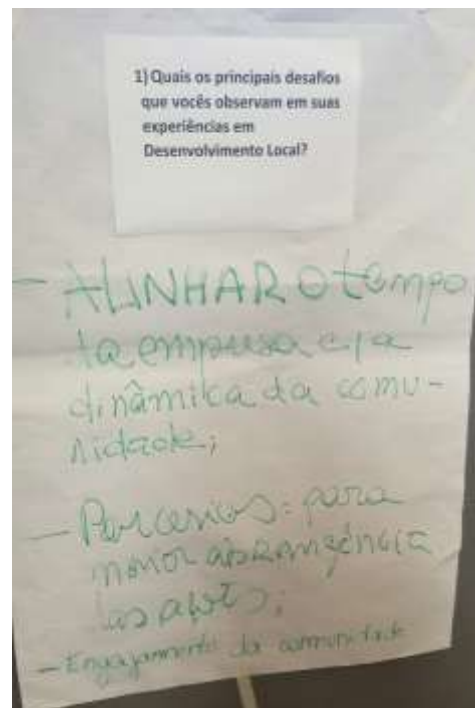 1) Quais os principais desafios
que vocês observam em suas
experiências em
Desenvolvimento Local?
- ALINHAR o tempo
da empresa c/ a
dinâmica da comu-
nidade;
- Parcerias: para
maior abrangência
das ações;
- Engajamento da comunidade